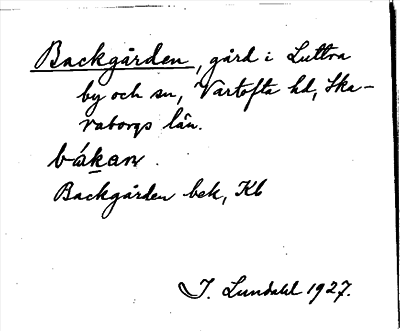 Backgården, gård i Luttra
by och sn, Vartofta hd, Ska-
raborgs län.
bákan.
Backgården bek, Kb
I. Lundahl 1927.